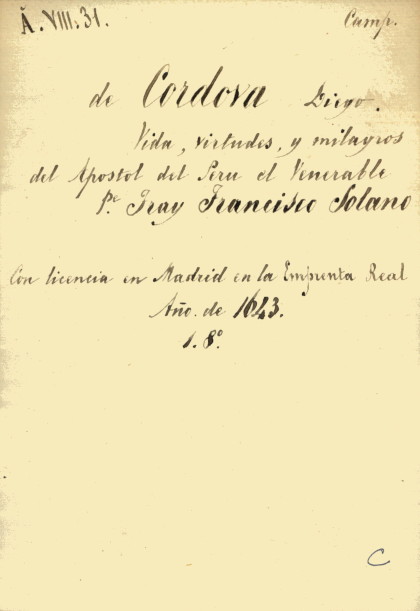 Ā.VIII.31. Camp.
de Cordova Diego.
Vida, virtudes, y milagros
del Apostol del Peru el Venerable
Pe Fray Francisco Solano
Con licencia en Madrid en la Emprenta Real
Año. de 1643.
1. 8o.
C